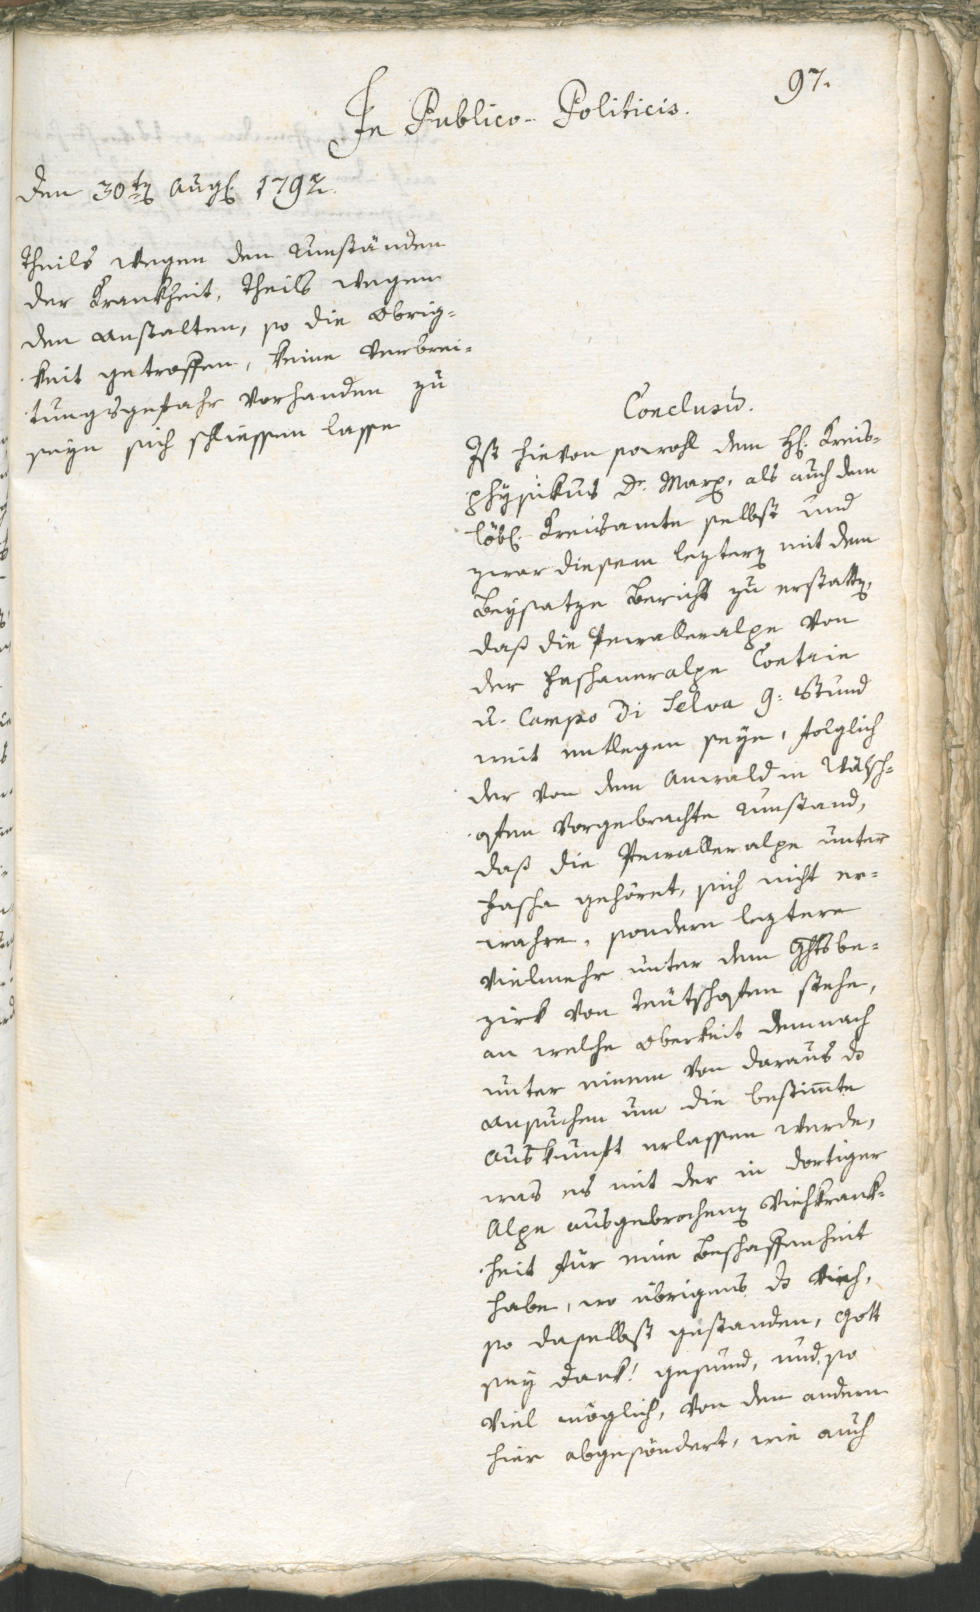 97.
In Publico-Politicis.
Den 30ten Aug. 1792.
Theils wegen den Umständen
der Krankheit, theils wegen
den Anstalten, so die Obrig=
keit getroffen, keine Verbrei=
tungsgefahr vorhanden zu
seyn sich schliessen lasse
Conclusū.
Ist hievon sowohl dem H. Kreis=
physikus Dr. Marx, als auch dem
löbl. Kreisamte selbst und
zwar diesem letztern mit dem
Beysatze Bericht zu erstatten,
daß die alpe von
der Faschaneralpe Contrin
u. Campo di Selva 9: Stund
weit entlegen seye, folglich
der von dem Anwald in Wälsch=
ofen vorgebrachte Umstand,
daß die alpe unter
Fascha gehöret, sich nicht er=
wahre, sondern letztere
vielmehr unter dem Ghtsbe=
zirk von Teutschofen stehe,
an welche Oberkeit demnach
unter einem von daraus ds
Ansuchen um die bestim̄te
Auskunft erlassen werde,
was es mit der in dortiger
Alpe ausgebrochenen Viehkrank=
heit für eine Beschaffenheit
habe, wo übrigens ds Vieh,
so daselbst gestanden, Gott
sey Dank! gesund, und so
viel möglich, von dem andern
hier abgesöndert, wie auch